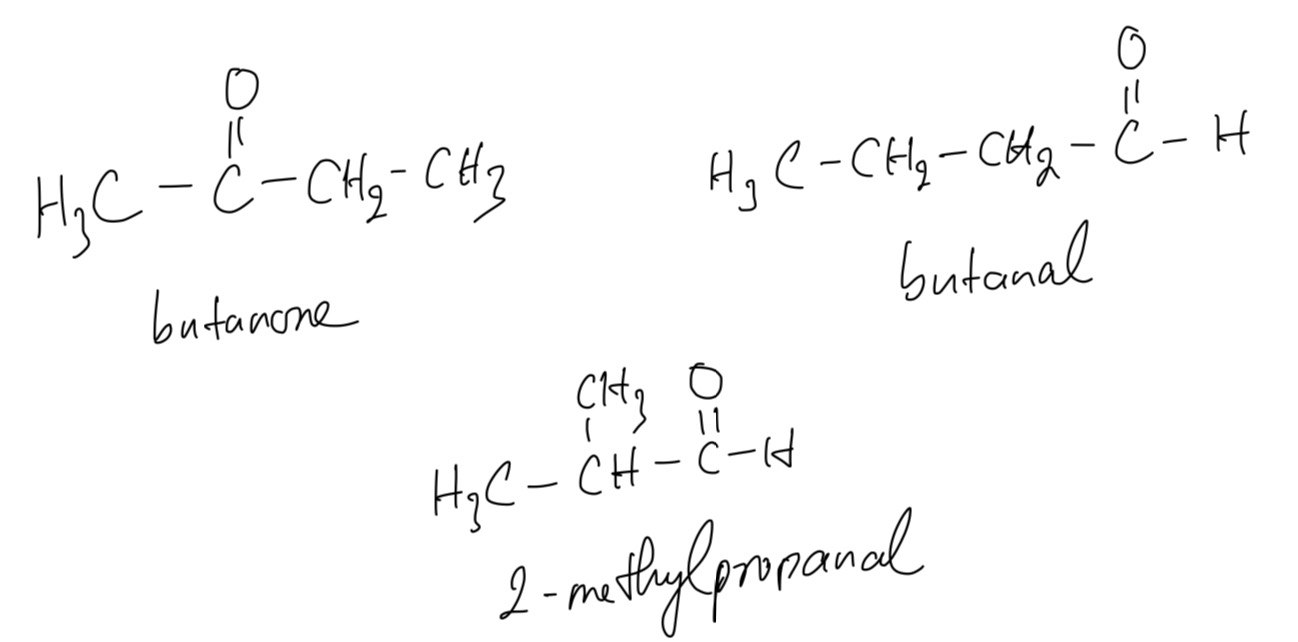 O
||
H₃C – C – CH₂ – CH₃
butanone
O
||
H₃C – CH₂ – CH₂ – C – H
butanal
CH₃ O
| ||
H₃C – CH – C – H
2-methylpropanal